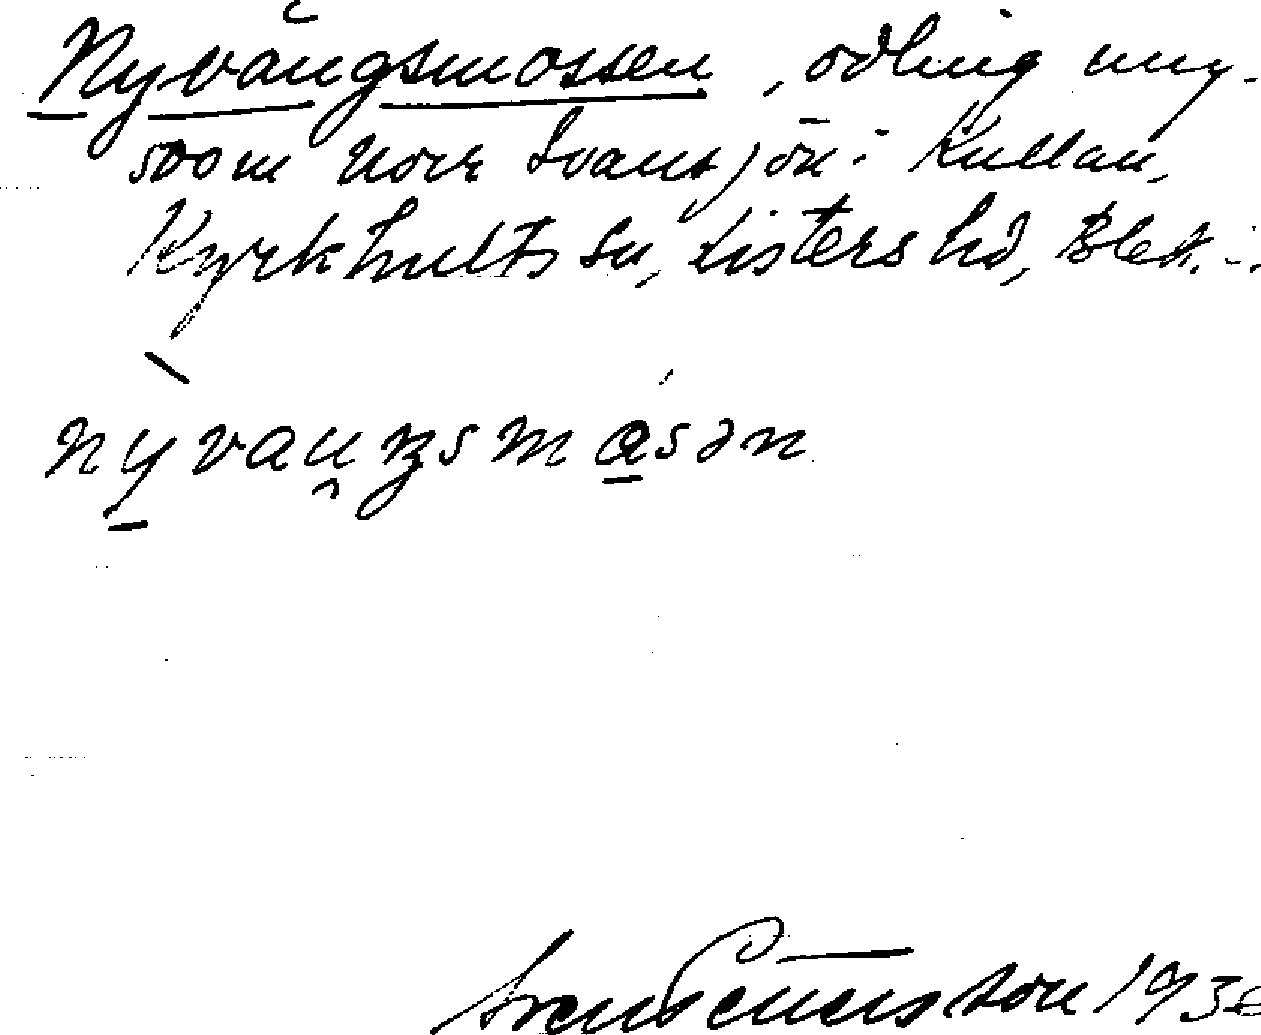 Nyvångsmossen, odling
500 m norr Svansjön: Kullan,
Kyrkhults sn, Listers hd, Blek.
nyvaunzsmasən
Sven Benson 193